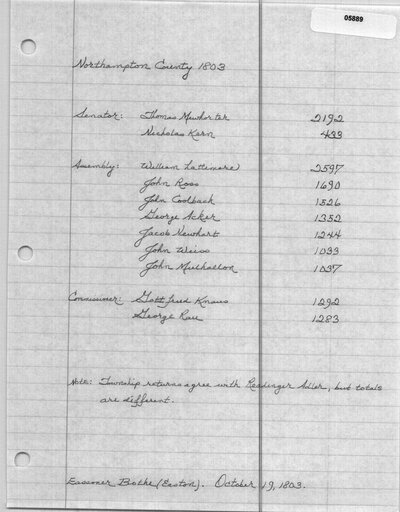 05889
Northampton County 1803
Senator: Thomas Mewhorter 2192
Nicholas Kern 433
Assembly: William Lattimore 2597
John Ross 1690
John Coolback 1526
George Acker 1352
Jacob Newhart 1244
John Weiss 1033
John Mulhallon 1037
Commissioner: Gottfried Knaus 1292
George Rau 1283
Note: Township returns agree with Readinger Adler, but totals
are different.
Bothe (Easton). October 19, 1803.